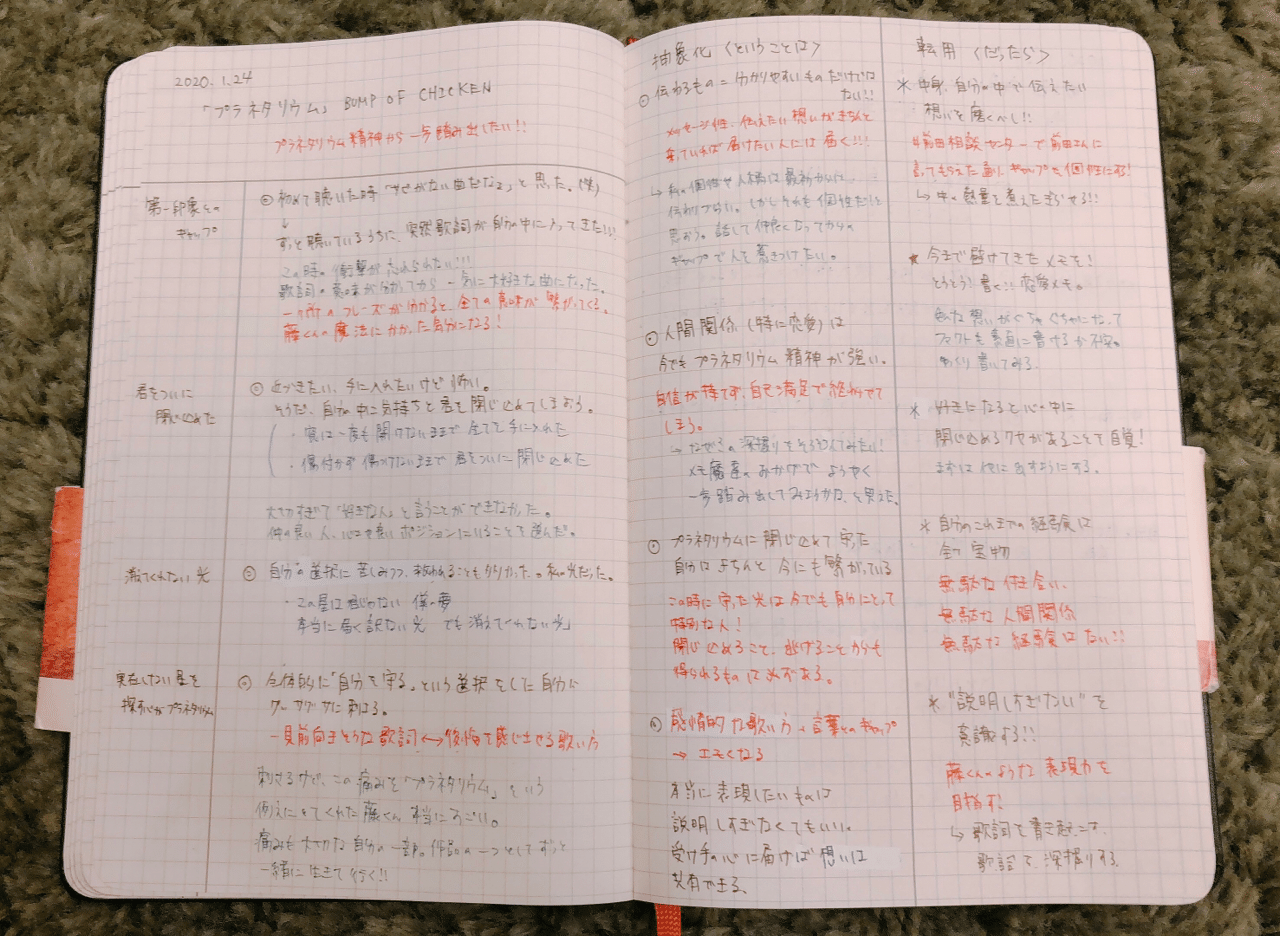 2020.1.24
「プラネタリウム」 BUMP OF CHICKEN
プラネタリウム精神から一歩踏み出したい!!
第一印象との
ギャップ
初めて聴いた時「サビがない曲だなぁ」と思った。(笑)
↓
ずっと聴いているうちに、突然歌詞が自分の中に入ってきた!!!
この時の衝撃が忘れられない!!!
歌詞の意味が分かってから一気に大好きな曲になった。
一ヶ所のフレーズが分かると、全ての意味が繋がってくる。
藤くんの魔法にかかった気分になる!
君をついに
閉じ込めた
近づきたい、手に入れたいけど怖い。
そうだ、自分の中に気持ちと君を閉じ込めてしまおう。
・実は一度も開けないままで全てを手に入れた
・傷付かず傷つけないままで君をついに閉じ込めた
大切すぎて「好きな人」と言うことができなかった。
仲の良い人、心地良いポジションにいることを選んだ。
消えてくれない光
自分の選択に苦しみつつ、救われることも多かった。私の光だった。
・この星は君じゃない 僕の夢
本当に届く訳ない光 でも消えてくれない光」
実在しない星を
探す心がプラネタリウム
全体的に「自分を守る」という選択をした自分に
グサグサに刺さる。
一見前向きそうな歌詞↔後悔を感じさせる歌い方
刺さるけど、この痛みを「プラネタリウム」という
例えにしてくれた藤くん本当にすごい。
痛みも大切な自分の一部。作品の一つとしてずっと
一緒に生きて行く!!
抽象化〈ということは〉
伝わるもの=分かりやすいものだけでは
ない!!
メッセージ性、伝えたい想いがきちんと
乗っていれば届けたい人には届く!!!
↳私の個性や人柄は最初からは
伝わりづらい。しかしそれも個性だと
思おう。話して仲良くなってからの
ギャップで人を惹きつけたい。
人間関係(特に恋愛)は
今でもプラネタリウム精神が強い。
自信が持てず、自己満足で終わらせて
しまう。
↳なぜ?の深掘りをそろそろしてみたい!
メモ魔達のおかげでようやく
一歩踏み出してみようかな、と思えた。
プラネタリウムに閉じ込めて守った
自分はきちんと今にも繋がっている
この時に守った光は今でも自分にとって
特別な人!
閉じ込めること、逃げることからも
得られるものは必ずある。
感情的な歌い方→言葉とのギャップ
→エモくなる
本当に表現したいものは
説明しすぎなくてもいい。
受け手の心に届けば想いは
共有できる。
転用〈だったら〉
*中身、自分の中で伝えたい
想いを磨くべし!!
#前田相談センターで前田さんに
言ってもらえた通り、ギャップを個性にする!
↳中の熱量を煮えたぎらせる!!
★今まで避けてきたメモを!
とうとう!書く!!恋愛メモ。
色んな想いがぐちゃぐちゃになって
ファクトを素直に書けるか不安。
ゆっくり書いてみる。
*好きになると心の中に
閉じ込めるクセがあることを自覚!
まずは他に出すようにする。
*自分のこれまでの経験は
全て宝物
無駄な付き合い、
無駄な人間関係
無駄な経験はない!!
*"説明しすぎない"を
意識する!!
藤くんのような表現力を
目指す!
↳歌詞を書き起こす、
歌詞を深掘りする。